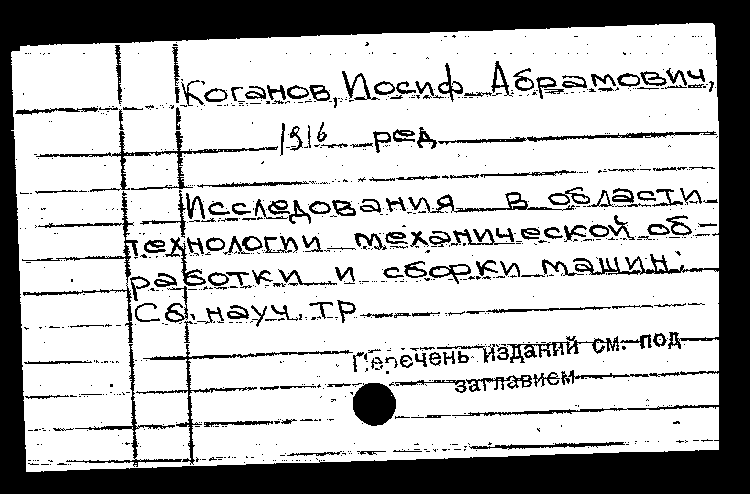 Коганов, Иосиф Абрамович,
1916 ред
Исследования в области
технологии механической об-
работки и сборки машин:
Сб. науч. тр
Перечень изданий см. под
заглавием